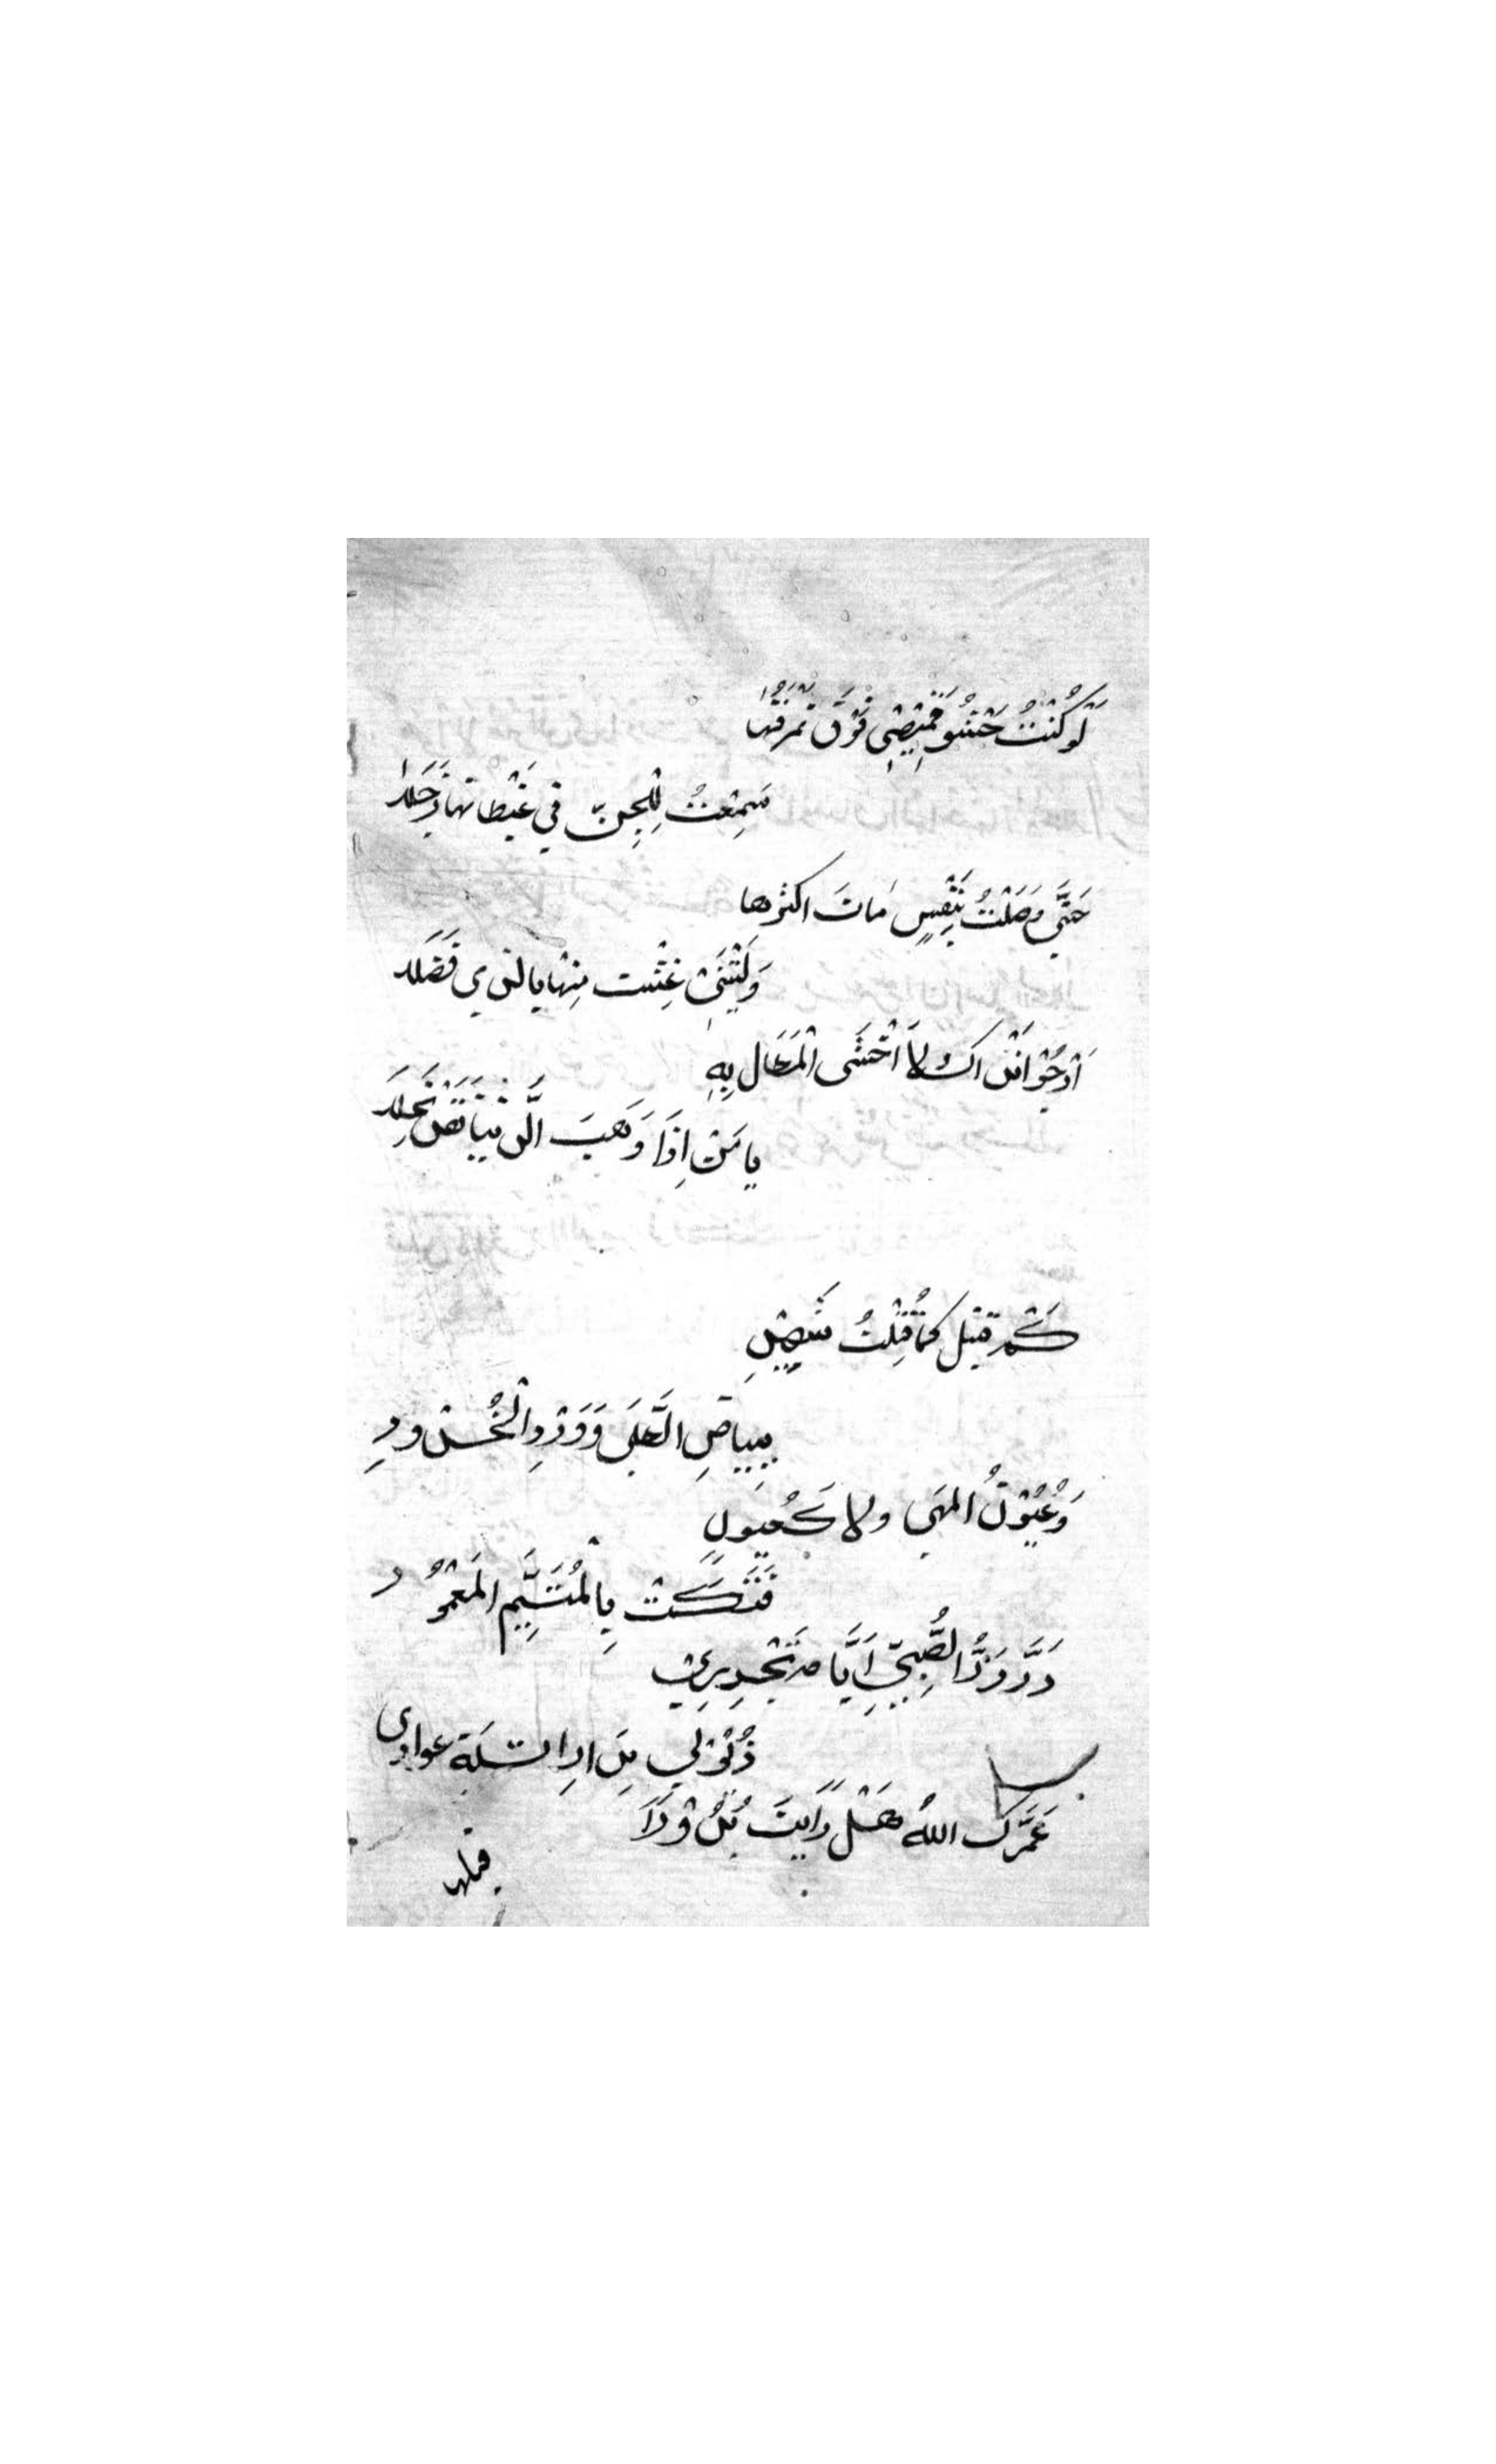 لَوْ كُنْتُ حَشْوَ قَمِيْصِي فَوْقَ نُمْرُقُهَا
سَمِعْتُ لِلْجِنِّ في غَيْطانها زَجَلا
حَتَّى وَصَلْتُ بِنَفْسٍ مَاتَ اكثرها
وَلَيْتَنِيْ عِشْت مِنْهَا بالذي فَضَلَا
اَرْجُوْ انَدْاكَ لاَ اَخْشَى الْمَطَال بِهِ
يا مَنْ اِذَا وَهَبَ الَّدنيَا فَقَدْ بَخِلَا
كَمْ قتيل كَمَا قُتِلْتُ شَهِيْدٍ
بِبياضِ الطَّلَى وَوَرْدِ الْخُدْودِ
وَعُيُوْنُ المَهَى ولا كَعُيَونٍ
فَتَكَتْ بِالْمُتَيَّمِ المَعْمُوْدِ
دَرَّ دَرُّ الصُّبِىَّ اَيَّامَ تَجْرِيرِيْ
ذُيُوْلِي بِدَارِ اثْلَةَ عوادي
عَمَّرَكَ اللهُ هَلْ رَاَيتَ بُدُوْرَاً
قبلها